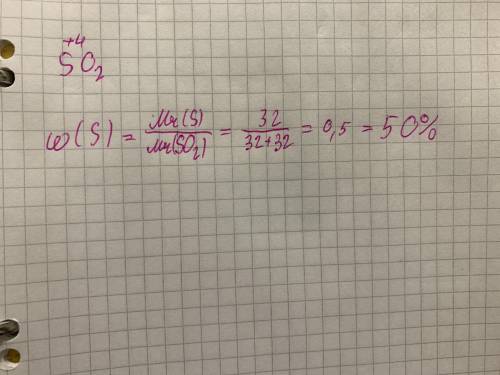 +4
SO₂
ω(S) = Mr(S)/Mr(SO₂) = 32/32+32 = 0,5 = 50%